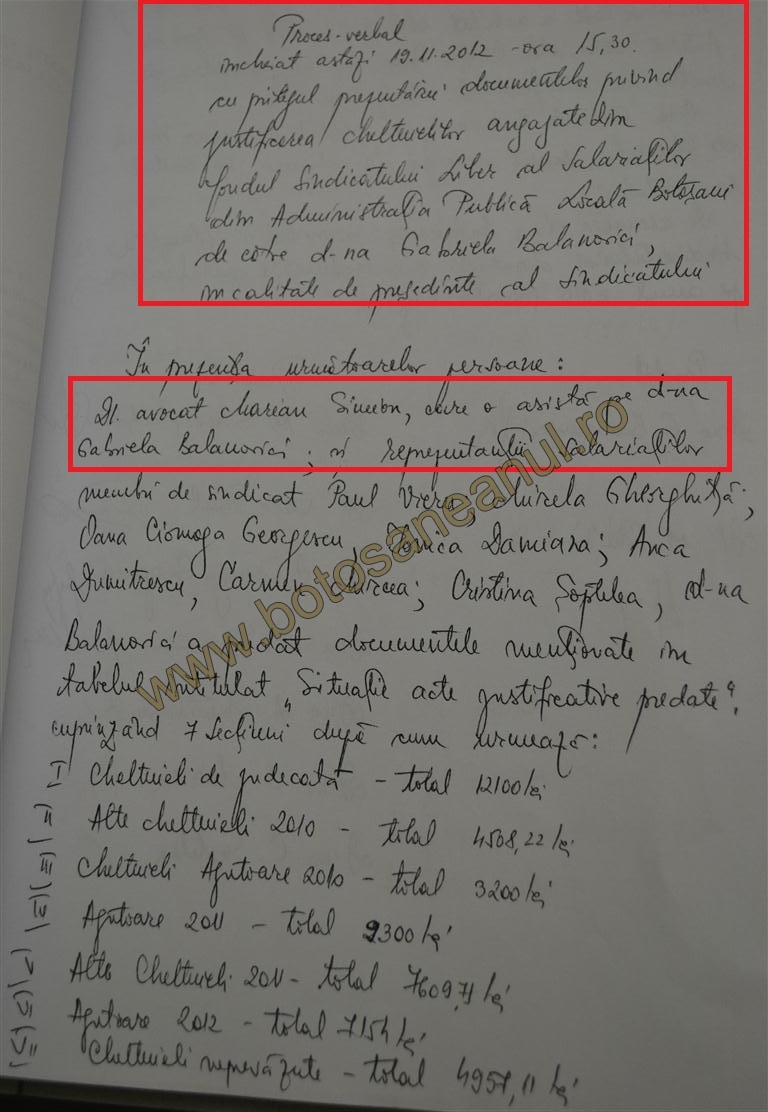 Proces-verbal
încheiat astăzi 19.11.2012 - ora 15,30.
cu prilejul prezentării documentelor privind
justificarea cheltuielilor angajate din
fondul Sindicatului Liber al Salariaților
din Administrația Publică Locală Botoșani
de către d-na Gabriela Balanovici,
în calitate de președinte al sindicatului
În prezența următoarelor persoane:
Dl. avocat Marian Simion, care o asistă pe d-na
Gabriela Balanovici; și reprezentanții salariaților
membri de sindicat Paul Mirela Gheorghiță;
Oana Ciomaga Georgescu, Damiana; Anca
Dumitrescu, Carmen Mircea; Cristina d-na
Balanovici a predat documentele menționate în
tabelul intitulat „Situație acte justificative predate",
cuprinzând 7 secțiuni după cum urmează:
I Cheltuieli de judecată - total 12100 lei
II Alte cheltuieli 2010 - total 4508,22 lei
III Cheltuieli Ajutoare 2010 - total 3200 lei
IV Ajutoare 2011 - total 9300 lei
V Alte Cheltuieli 2011 - total 7609,71 lei
VI Ajutoare 2012 - total 7154 lei
VII Cheltuieli neprevăzute - total 4957,11 lei
www.botosaneanul.ro